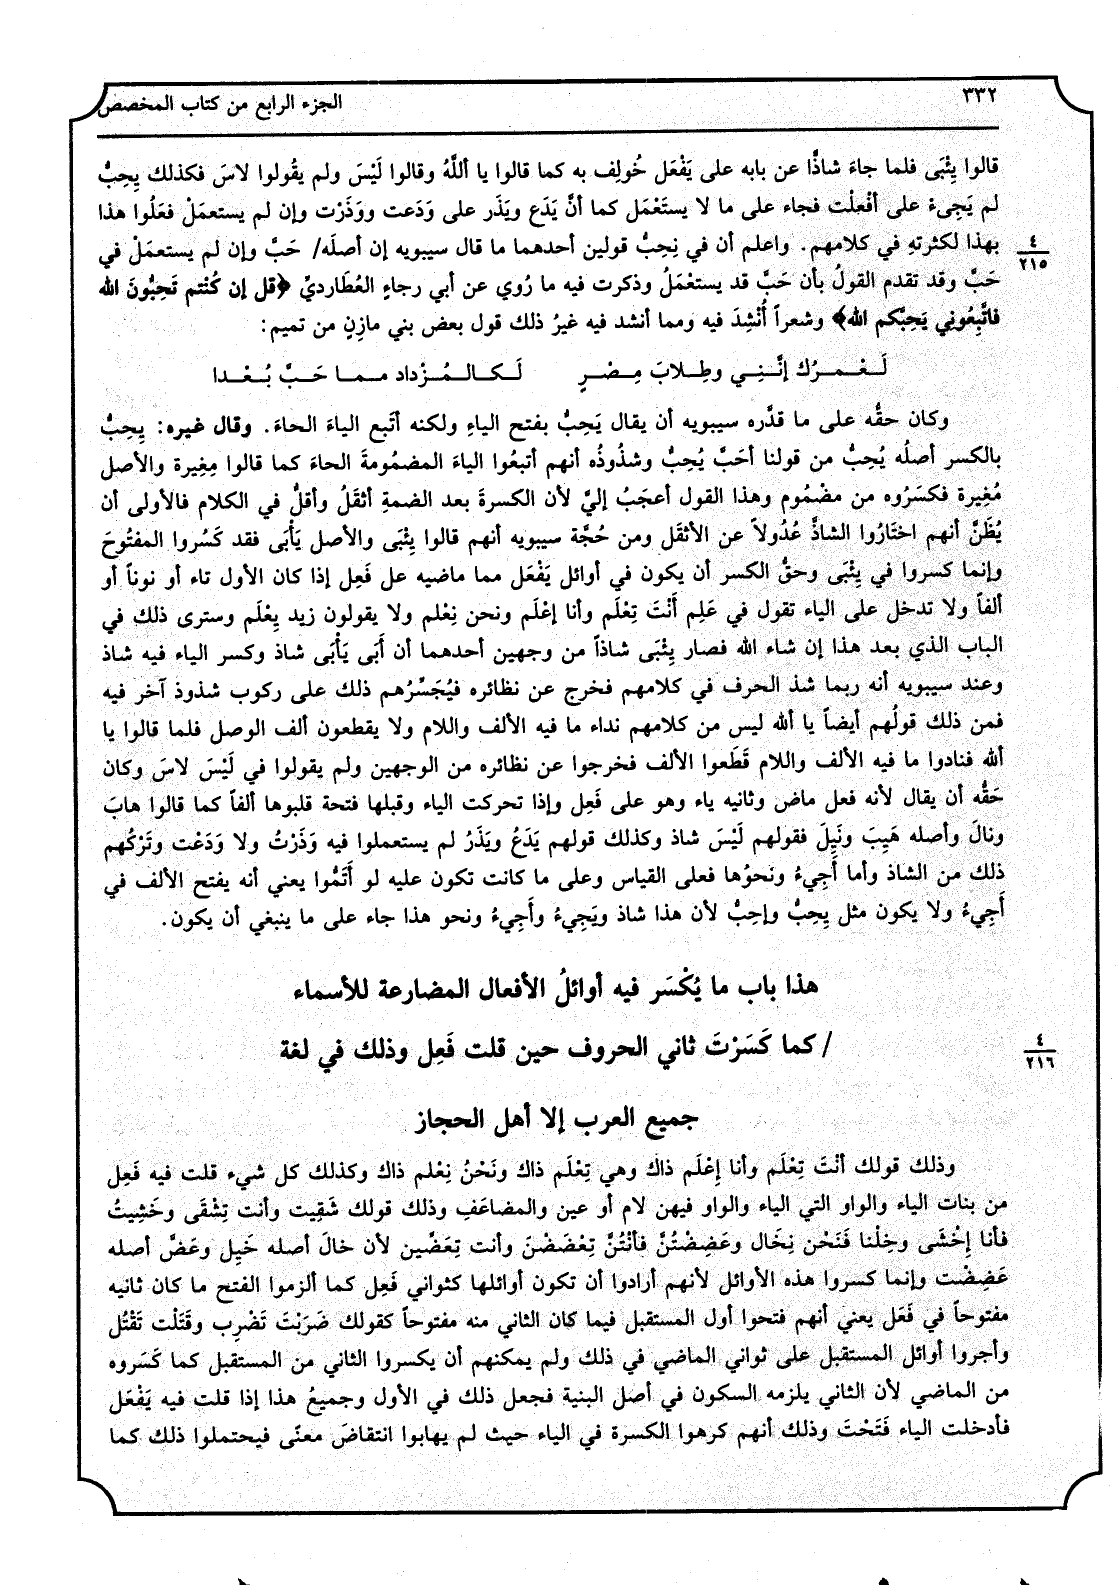 ٣٣٢
الجزء الرابع من كتاب المخصص
قالوا يِئْبَى فلما جاءَ شاذًّا عن بابه على يَفْعَل خُولِف به كما قالوا يا أللَّهُ وقالوا لَيْسَ ولم يقُولوا لاسَ فكذلك يِحِبُّ
لم يَجِىءْ على أفْعلْت فجاء على ما لا يستَعْمَل كما أنَّ يَدَع ويَذَر على وَدَعت ووَذَرْت وإن لم يستعمَلْ فعَلُوا هذا
بهذا لكثرتهِ في كلامهم. واعلم أن في نِحِبُّ قولين أحدهما ما قال سيبويه إن أصلَه/ حَبَّ وإن لم يستعمَلْ في
٤
٢١٥
حَبَّ وقد تقدم القولُ بأن حَبَّ قد يستعْمَلُ وذكرت فيه ما رُوي عن أبي رجاءٍ العُطَارديِّ ﴿قل إن كُنْتم تَحِبُّونَ الله
فاتَّبِعُوني يَحِبّكم الله﴾ وشعراً أُنْشِدَ فيه ومما أنشد فيه غيرُ ذلك قول بعض بني مازِنٍ من تميم:
لَـعَـمـرُك إنَّـنِـي وطِـلابَ مِـصْـرٍ لَـكـالـمُـزْداد مـمـا حَـبَّ بُـعْـدا
وكان حقُّه على ما قدَّره سيبويه أن يقال يَحِبُّ بفتح الياءِ ولكنه أتَبع الياءَ الحاءَ. وقال غيره: يِحِبُّ
بالكسر أصلُه يُحِبُّ من قولنا أحَبَّ يُحِبُّ وشذُوذُه أنهم أتبعُوا الياءَ المضمُومةَ الحاءَ كما قالوا مِغِيرة والأصل
مُغِيرة فكسَرُوه من مضْمُوم وهذا القول أعجَبُ إليَّ لأن الكسرةَ بعد الضمةِ أثقَلُ وأقلُّ في الكلام فالأولى أن
يُظَنَّ أنهم اختَارُوا الشاذَّ عُدُولاً عن الأثقَل ومن حُجَّة سيبويه أنهم قالوا يِئْبَى والأصل يَأْبَى فقد كَسُروا المفتُوحَ
وإنما كسروا في يِئْبَى وحقُّ الكسر أن يكون في أوائل يَفْعَل مما ماضيه عل فَعِل إذا كان الأول تاء أو نوناً أو
ألفاً ولا تدخل على الياء تقول في عَلِم أنْتَ تِعْلَم وأنا إعْلَم ونحن نِعْلم ولا يقولون زيد يِعْلَم وسترى ذلك في
الباب الذي بعد هذا إن شاء الله فصار يِئْبَى شاذاً من وجهين أحدهما أن أَبَى يَأْبَى شاذ وكسر الياء فيه شاذ
وعند سيبويه أنه ربما شذ الحرف في كلامهم فخرج عن نظائره فيُجَسِّرُهم ذلك على ركوب شذوذ آخر فيه
فمن ذلك قولُهم أيضاً يا ألله ليس من كلامهم نداء ما فيه الألف واللام ولا يقطعون ألف الوصل فلما قالوا يا
ألله فنادوا ما فيه الألف واللام قَطَعوا الألف فخرجوا عن نظائره من الوجهين ولم يقولوا في لَيْسَ لاسَ وكان
حَقُّه أن يقال لأنه فعل ماض وثانيه ياء وهو على فَعِل وإذا تحركت الياء وقبلها فتحة قلبوها ألفاً كما قالوا هابَ
ونالَ وأصله هَيِبَ ونَيِلَ فقولهم لَيْسَ شاذ وكذلك قولهم يَدَعُ ويَذَرُ لم يستعملوا فيه وَذَرْتُ ولا وَدَعْت وتَرْكُهم
ذلك من الشاذ وأما أَجِيءُ ونَحوُها فعلى القياس وعلى ما كانت تكون عليه لو أَتَمُّوا يعني أنه يفتح الألف في
أَجِيءُ ولا يكون مثل يِحِبُّ وإحِبُّ لأن هذا شاذ ويَجِيءُ وأَجِيءُ ونحو هذا جاء على ما ينبغي أن يكون.
هذا باب ما يُكْسَر فيه أوائلُ الأفعال المضارعة للأسماء
/ كما كَسَرْتَ ثاني الحروف حين قلت فَعِل وذلك في لغة
٤
٢١٦
جميع العرب إلا أهل الحجاز
وذلك قولك أنْتَ تِعْلَم وأنا إعْلَم ذاك وهي تِعْلَم ذاك ونَحْنُ نِعْلم ذاك وكذلك كل شيء قلت فيه فَعِل
من بنات الياء والواو التي الياء والواو فيهن لام أو عين والمضاعَفِ وذلك قولك شَقِيت وأنت تِشْقَى وخَشِيتُ
فأنا إخْشَى وخِلْنا فَنَحْن نِخَال وعَضِضْتُنَّ فأنْتُنَّ تِعْضَضْنَ وأنت تِعَضِّين لأن خالَ أصله خَيِل وعَضَّ أصله
عَضِضْت وإنما كسروا هذه الأوائل لأنهم أرادوا أن تكون أوائلها كثواني فَعِل كما ألزموا الفتح ما كان ثانيه
مفتوحاً في فَعَل يعني أنهم فتحوا أول المستقبل فيما كان الثاني منه مفتوحاً كقولك ضَرَبْتَ تَضْرِب وقَتَلْت تَقْتُل
وأجروا أوائل المستقبل على ثواني الماضي في ذلك ولم يمكنهم أن يكسروا الثاني من المستقبل كما كَسَروه
من الماضي لأن الثاني يلزمه السكون في أصل البنية فجعل ذلك في الأول وجميعُ هذا إذا قلت فيه يَفْعَل
فأدخلت الياء فَتَحْتَ وذلك أنهم كرهوا الكسرة في الياء حيث لم يهابوا انتقاضَ معنًى فيحتملوا ذلك كما